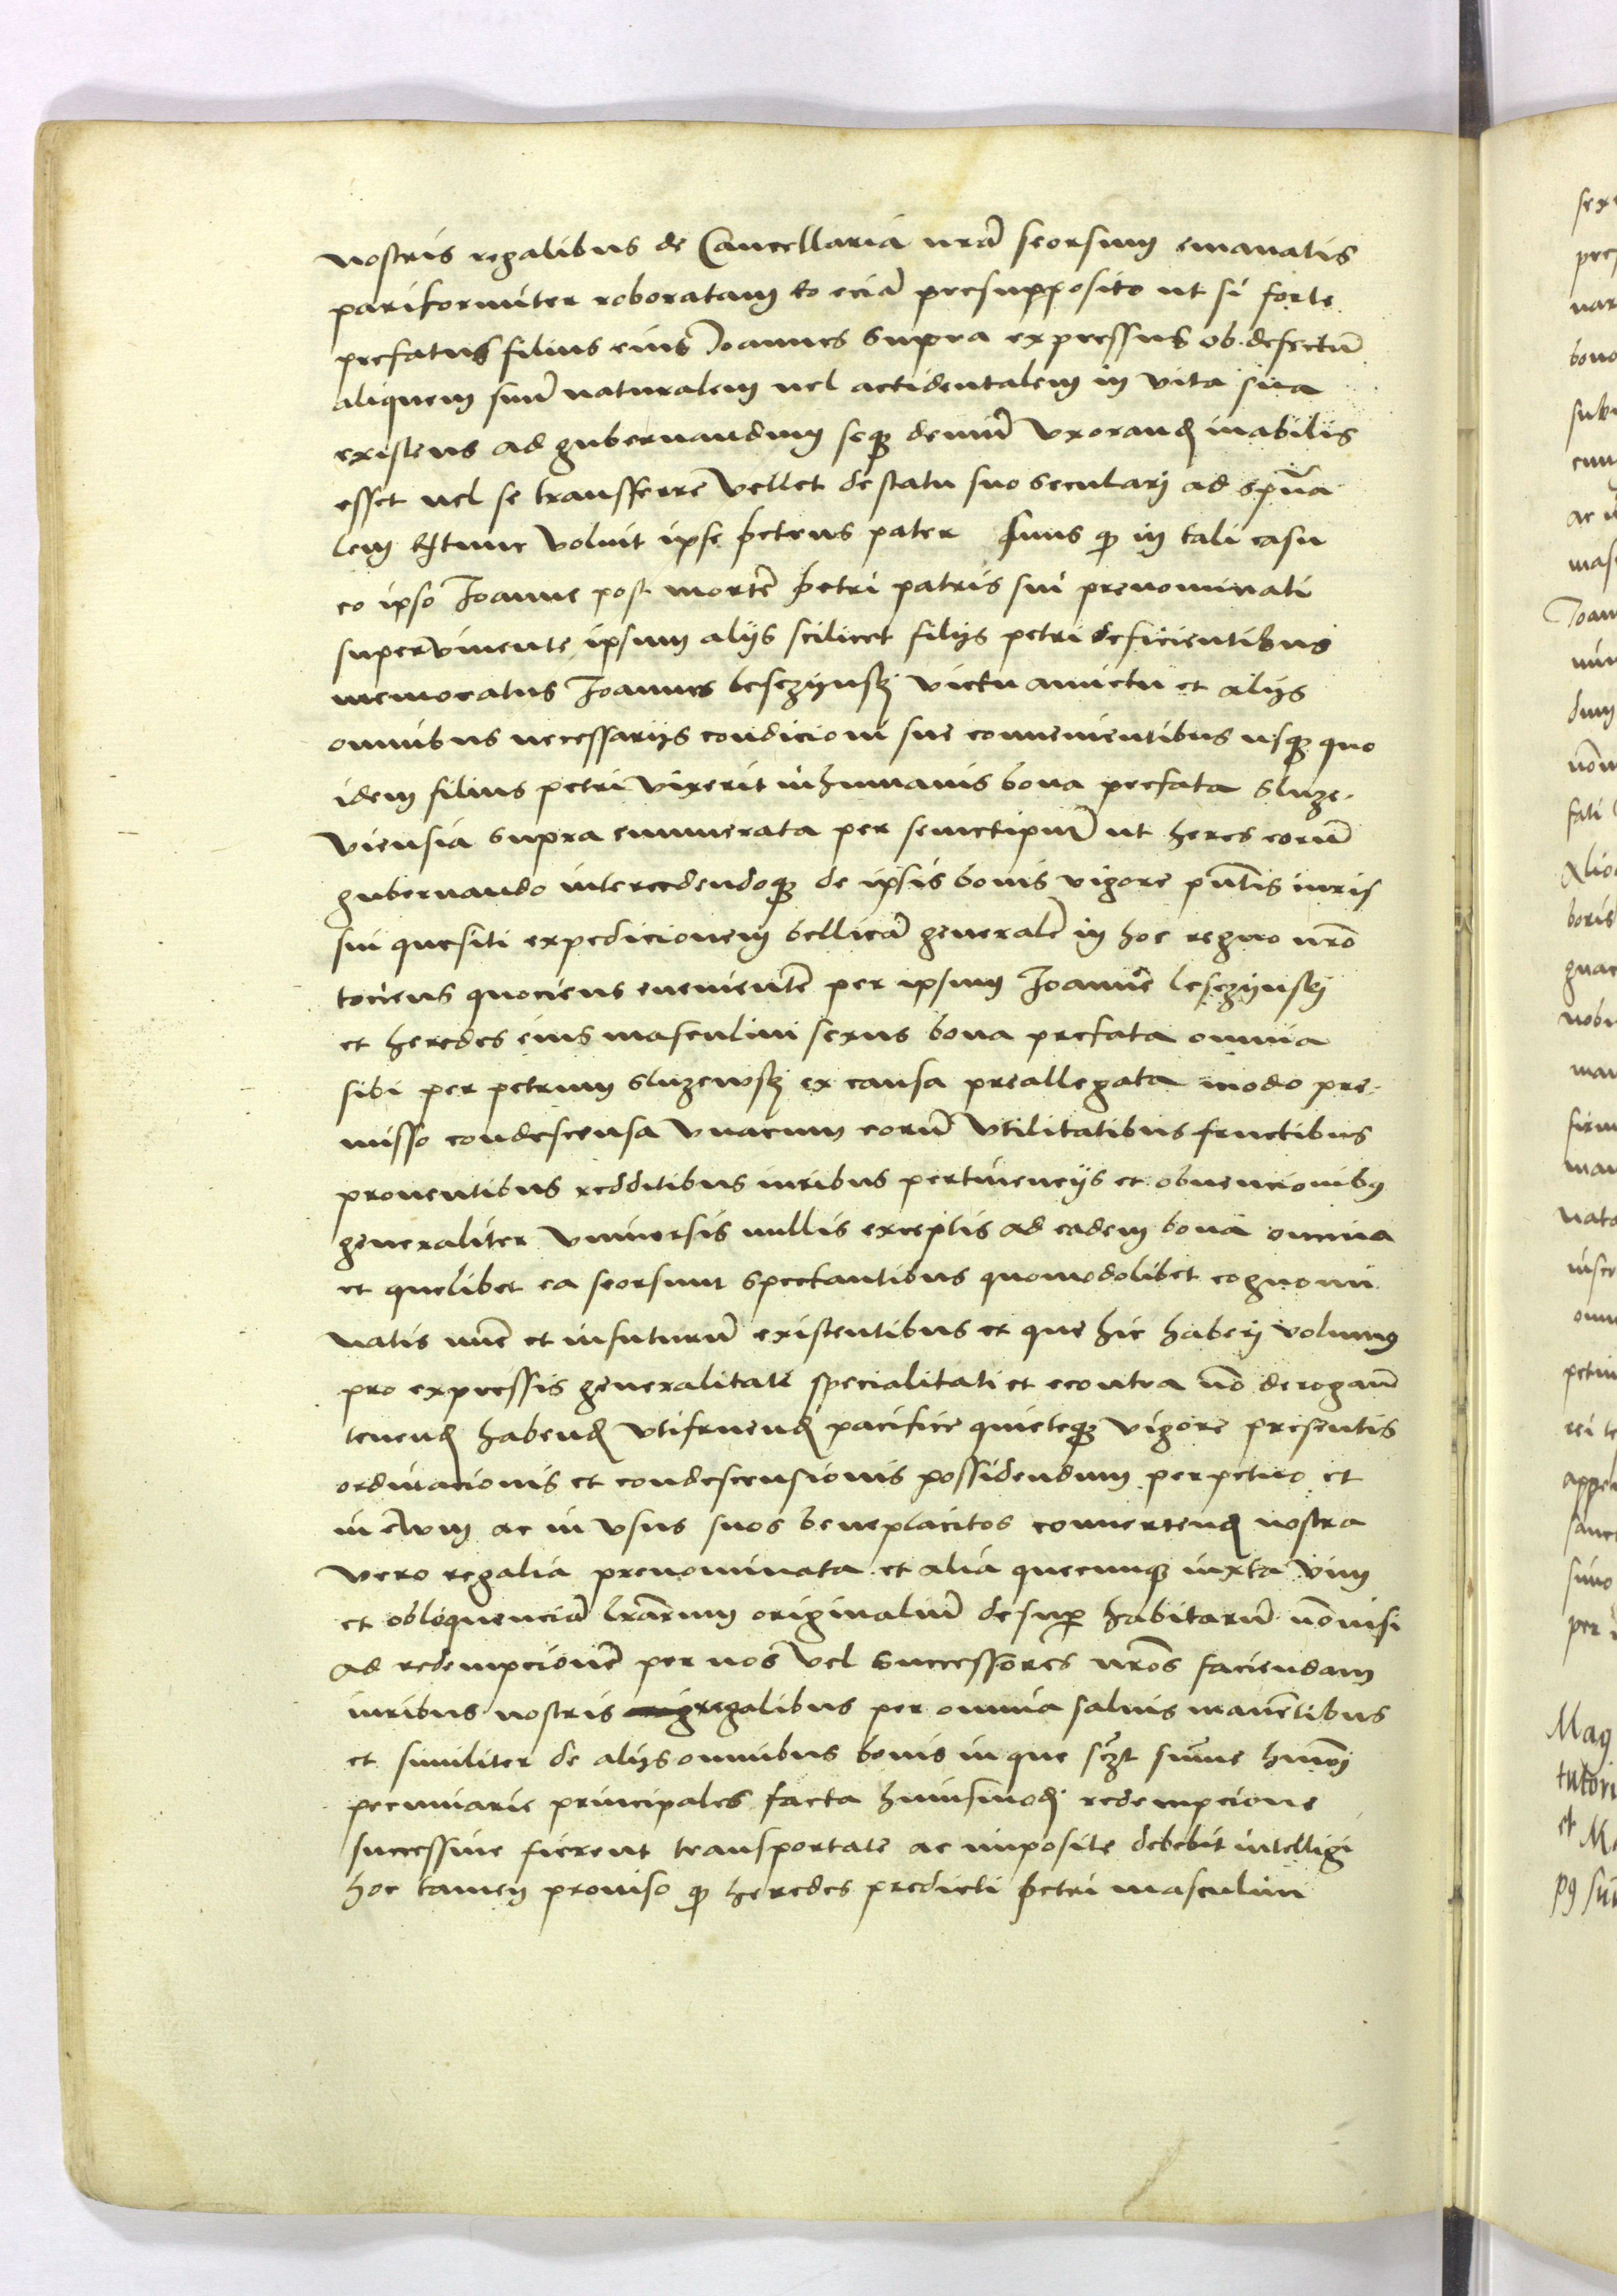 nostris regalibus de Cancellaria nrã seorsum emanatis
pariformiter roboratam Eo eciã presupposito ut si forte
prefatus filius eius Joannes supra expressus ob defectũ
aliquem suũ naturalem uel accidentalem in vita sua
existens ad gubernandum seqꝫ demũ vxorand inabilis
esset uel se transferre vellet de statu suo seculari ad spũa
lem Extunc voluit ipse petrus pater suus ꝙ in tali casu
eo ipso Joanne post mortẽ petri patris sui prenominati
superviuente ipsum alijs scilicet filijs petri deficientibus
memoratus Joannes lesczijnskj victu amictu et alijs
omnibus necessarijs condicioni sue conuenientibus usqꝫ quo
idem filius petri vixerit inhumanis bona prefata Sluze-
viensia supra enumerata per semetipsũ ut heres eorũ
gubernando intercedendoqꝫ de ipsis bonis vigore pñtis iuris
sui quesiti expedicionem bellicã generalẽ in hoc regno nrõ
tociens quociens euenientẽ per ipsum Joannẽ lesczijnskj
et heredes eius masculini sexus bona prefata omnia
sibi per petrum sluzewskj ex causa preallegata modo pre-
misso condescensa vnacum eorũ vtilitatibus fructibus
prouentibus redditibus iuribus pertinencijs et obuencionibꝰ
generaliter vniuersis nullis exceptis ad eadem bona omnia
et quelibet ea seorsum spectantibus quomodolibet cognomi
natis nũc et infuturũ existentibus et que hic haberj volumꝰ
pro expressis generalitati specialitati et econtra nõ derogañ
tenend habend vtifruend pacifice quieteqꝫ vigore presentis
ordinacionis et condescensionis possidendum perpetuo et
in ewm ac in vsus suos beneplacitos conuertend nostra
vero regalia prenominata et alia quecunqꝫ iuxta vim
et obloquenciã lrãrum originaliũ desuper habitarũ nõnisi
ad redempcionẽ per nos vel successores nrõs faciendam
iuribus nostris regalibus per omnia saluis manẽtibus
et similiter de alijs omnibus bonis in que sczt sũme hmõi
pecuniarie principales facta huiusmodj redempcione
successiue fierent transportate ac imposite debebit intelligi
hoc tamen prouiso ꝙ heredes predicti petri masculini